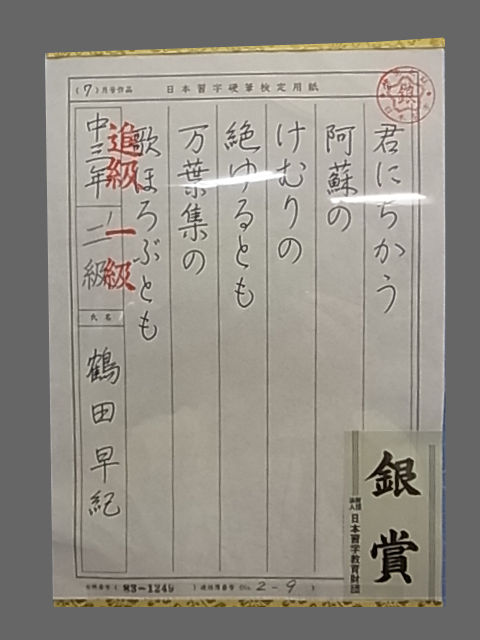 (7)月号作品
日本習字硬筆検定用紙
君にちかう
阿蘇の
けむりの
絶ゆるとも
万葉集の
歌ほろぶとも
進級 一級
中三年 二級
氏名
鶴田早紀
銀賞
財団法人 日本習字教育財団
83-1249
2-9